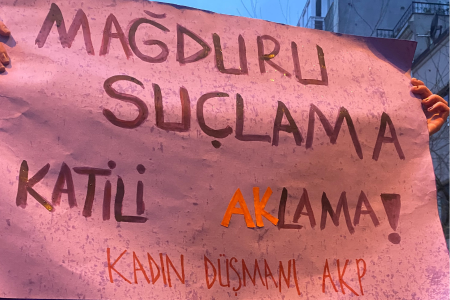 MAĞDURU
SUÇLAMA
KATİLİ AKLAMA!
KADIN DÜŞMANI AKP